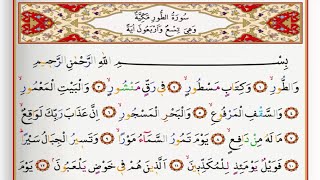 سُورَةُ الطُّورِ مَكِّيَّةٌ
وَهِيَ تِسْعٌ وَاَرْبَعُونَ اٰيَةً
بِسْــــمِ اللّٰهِ الرَّحْمٰنِ الرَّحٖيمِ
وَالطُّورِۙ ﴿١﴾ وَكِتَابٍ مَسْطُورٍۙ ﴿٢﴾ فٖي رَقٍّ مَنْشُورٍۙ ﴿٣﴾ وَالْبَيْتِ الْمَعْمُورِۙ ﴿٤﴾
وَالسَّقْفِ الْمَرْفُوعِۙ ﴿٥﴾ وَالْبَحْرِ الْمَسْجُورِۙ ﴿٦﴾ اِنَّ عَذَابَ رَبِّكَ لَوَاقِعٌۙ ﴿٧﴾
مَا لَهُ مِنْ دَافِعٍۙ ﴿٨﴾ يَوْمَ تَمُورُ السَّمَٓاءُ مَوْرًاۙ ﴿٩﴾ وَتَسٖيرُ الْجِبَالُ سَيْرًاۜ ﴿١٠﴾
فَوَيْلٌ يَوْمَئِذٍ لِلْمُكَذِّبٖينَۙ ﴿١١﴾ اَلَّذٖينَ هُمْ فٖي خَوْضٍ يَلْعَبُونَۢ ﴿١٢﴾